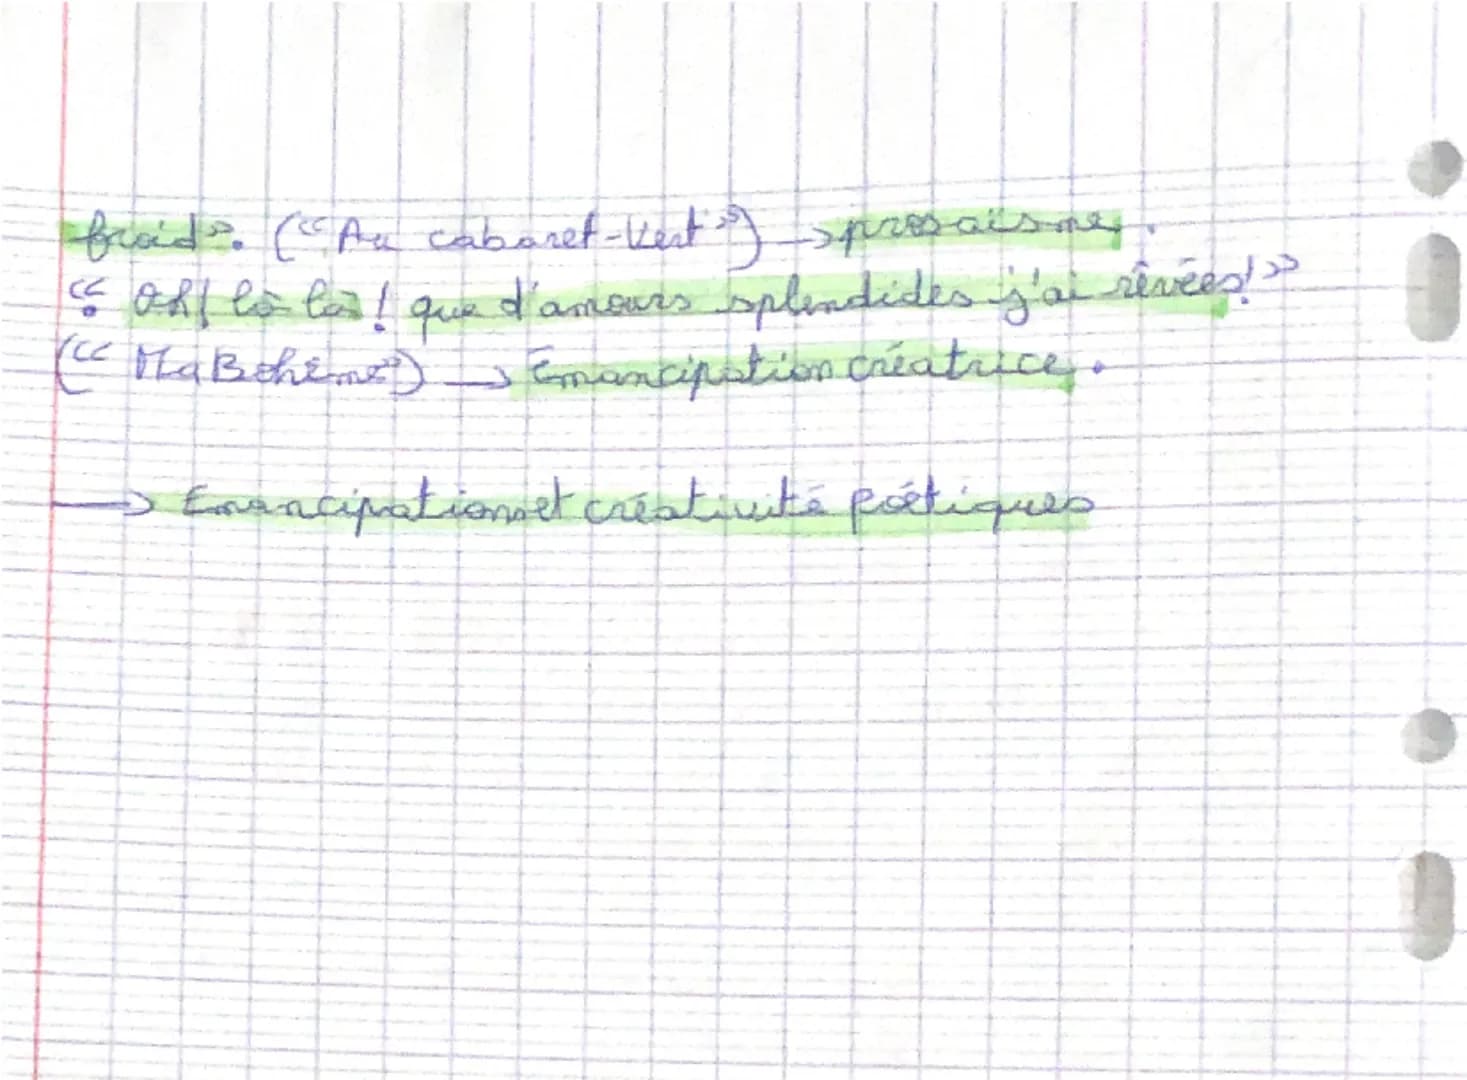 froid ». (“Au cabaret-Vert”) → prosaïsme.
“ Oh ! là là ! que d'amours splendides j'ai rêvées! ”
(“ Ma Bohême”) → Emancipation créatrice.
→ Emancipation et créativité poétiques